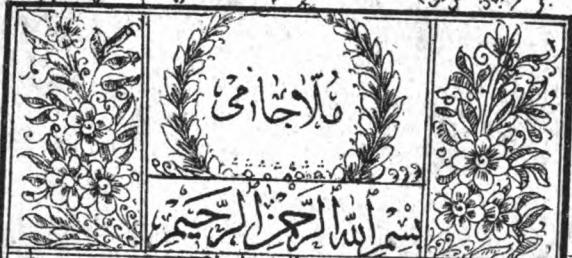 مُلّا جامى
بِسْمِ اللهِ الرَّحْمٰنِ الرَّحِيْمِ